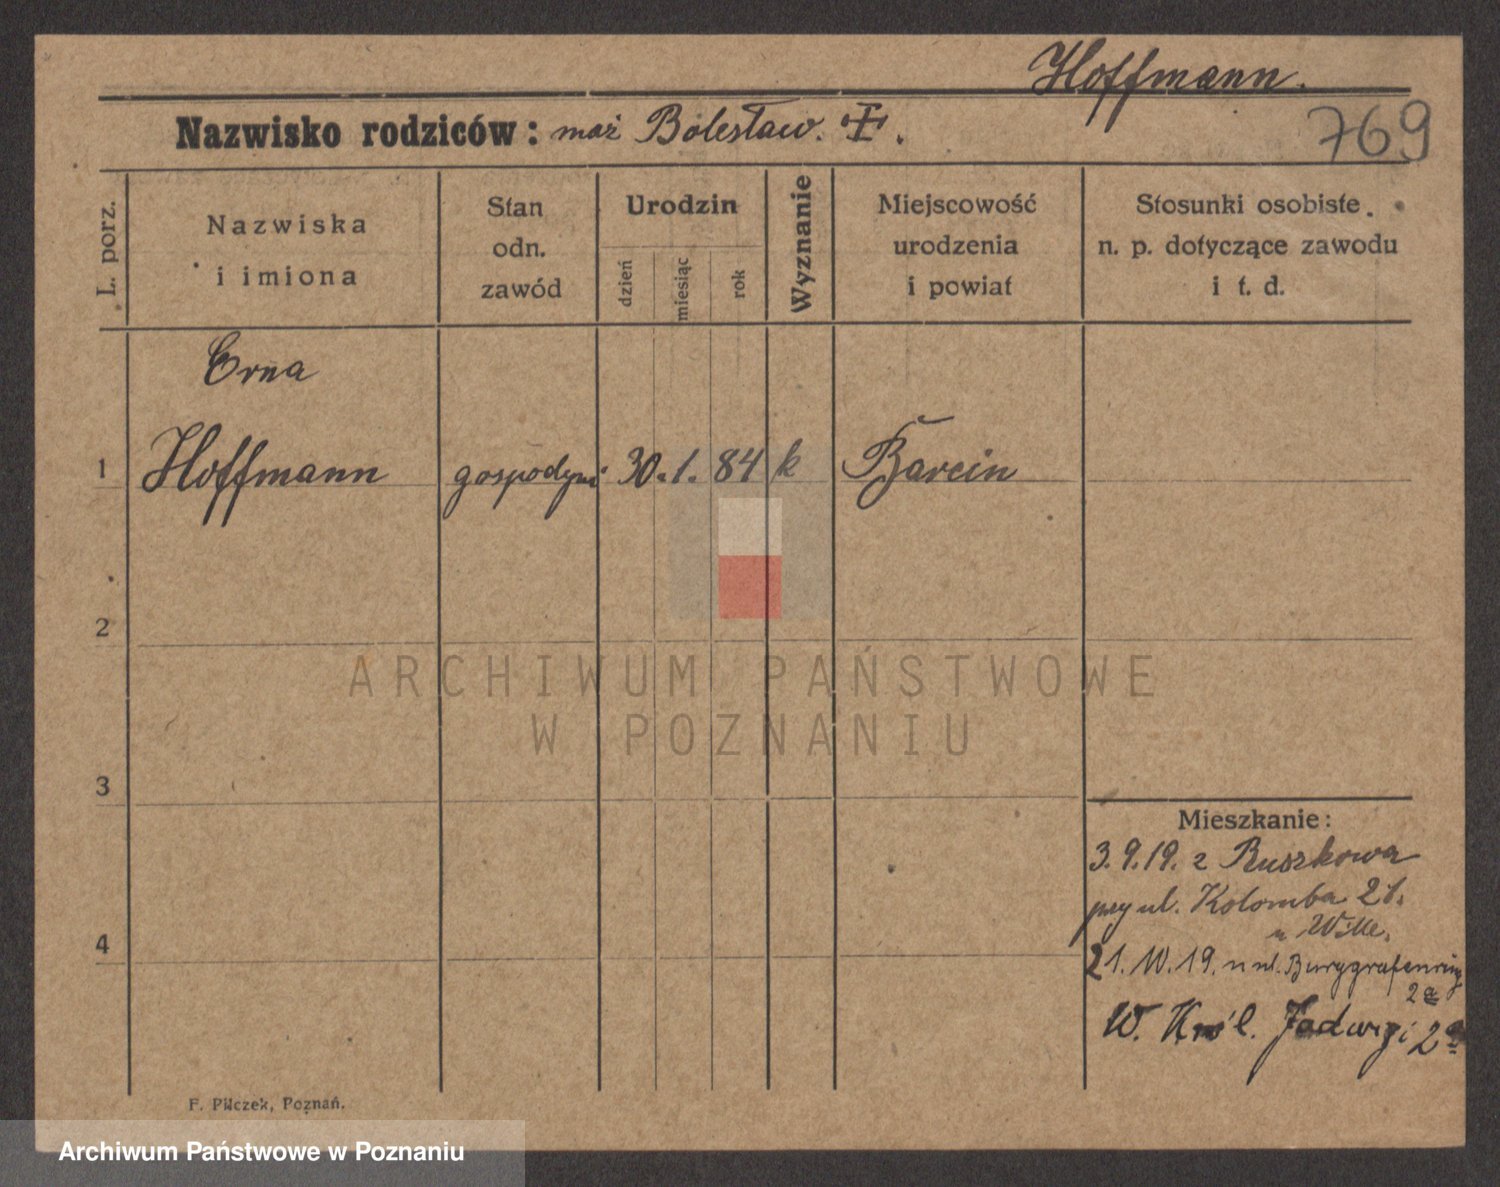 Hoffmann.
Nazwisko rodziców: mąż Bolesław.
769
L. porz.
Nazwiska
i imiona
Stan
odn.
zawód
Urodzin
dzień
miesiąc
rok
Wyznanie
Miejscowość
urodzenia
i powiat
Stosunki osobiste
n. p. dotyczące zawodu
i t. d.
Erna
1 Hoffmann gospodyni 30. 1. 84 k Barcin
2
ARCHIWUM PAŃSTWOWE
W POZNANIU
3
Mieszkanie:
3.9.19. z Ruszkowa
przy ul. Kolomba 21.
u Wille.
4
21.10.19. u ul. Burggrafenring
2a
W. Król. Jadwigi 2a
F. Pilczek, Poznań.
Archiwum Państwowe w Poznaniu